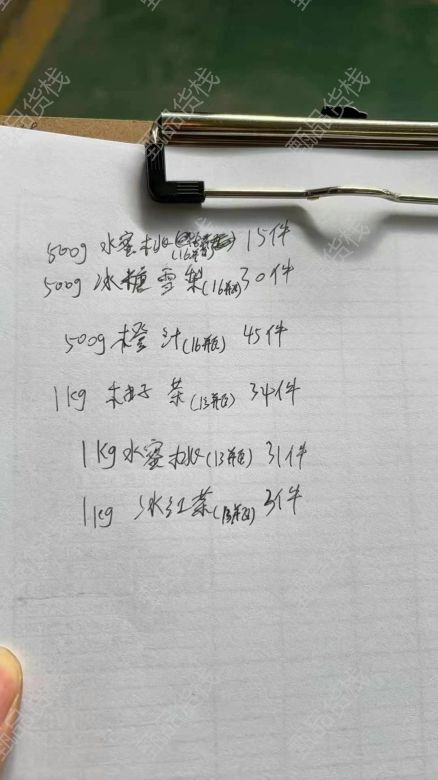 500g 水蜜桃(16瓶) 15件
500g 冰糖雪梨(16瓶) 30件
500g 橙汁(16瓶) 45件
1kg 柚子茶(13瓶) 34件
1kg 水蜜桃(13瓶) 31件
1kg 冰红茶(13瓶) 3件
甄品货栈